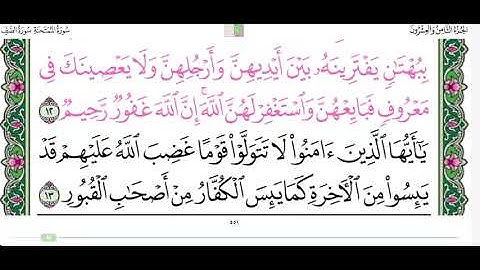 سُورَةُ المُمْتَحَنَةِ سُورَةُ الصَّفِّ
الجُزْءُ الثَّامِنُ وَالعِشْرُونَ
بِبُهْتَٰنٍ يَفْتَرِينَهُۥ بَيْنَ أَيْدِيهِنَّ وَأَرْجُلِهِنَّ وَلَا يَعْصِينَكَ فِى
مَعْرُوفٍ فَبَايِعْهُنَّ وَٱسْتَغْفِرْ لَهُنَّ ٱللَّهَ إِنَّ ٱللَّهَ غَفُورٌ رَّحِيمٌ ١٢
يَٰٓأَيُّهَا ٱلَّذِينَ ءَامَنُوا۟ لَا تَتَوَلَّوْا۟ قَوْمًا غَضِبَ ٱللَّهُ عَلَيْهِمْ قَدْ
يَئِسُوا۟ مِنَ ٱلْءَاخِرَةِ كَمَا يَئِسَ ٱلْكُفَّارُ مِنْ أَصْحَٰبِ ٱلْقُبُورِ ١٣
٥٥١